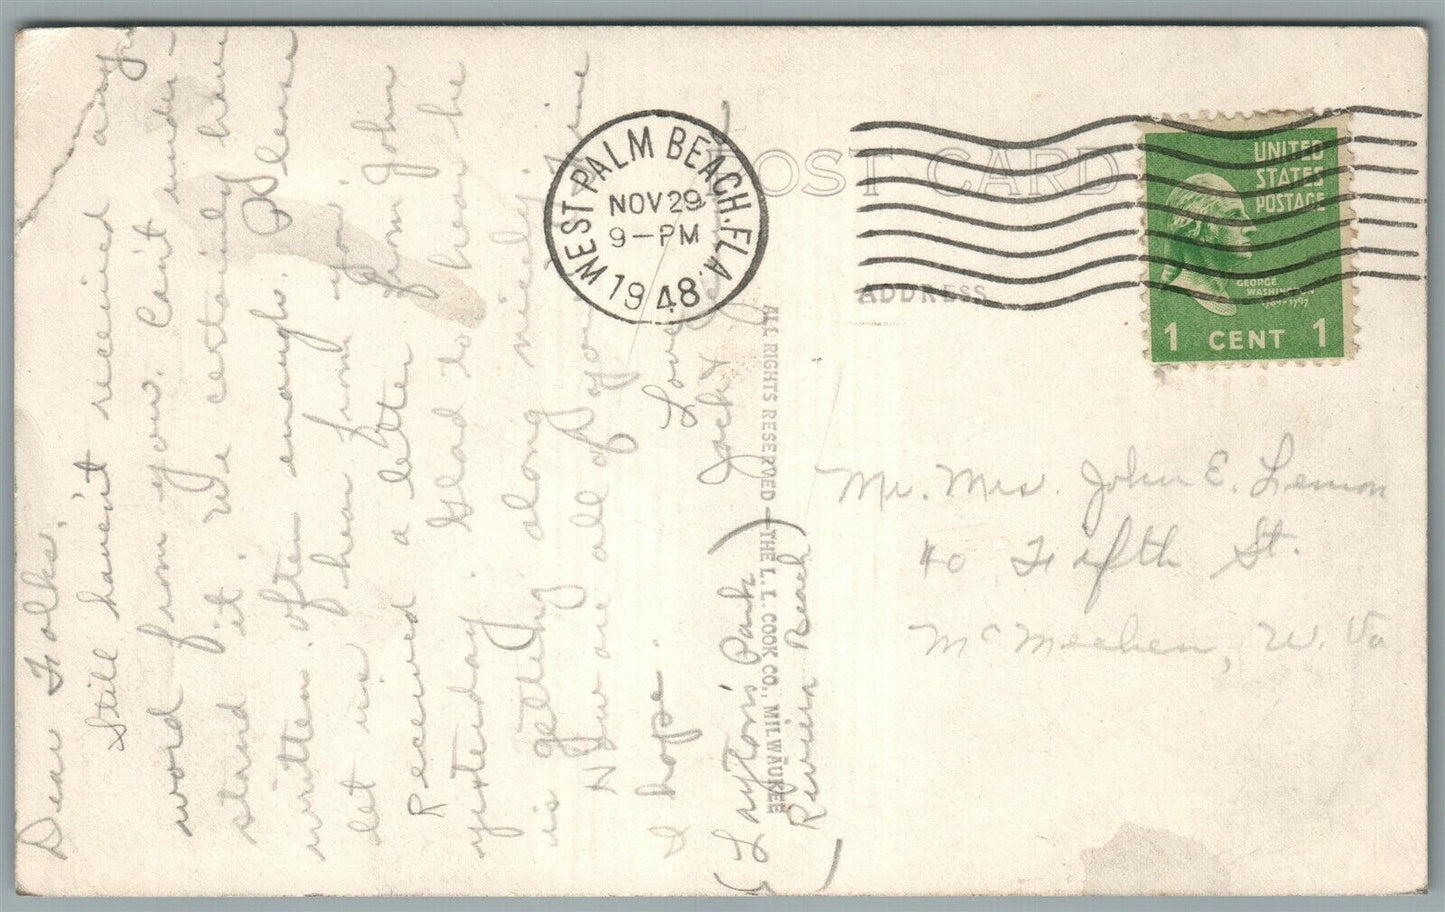 Dear Folks.
Still haven't received any
word from you. Can't under-
stand it. We certainly have
written often enough. Please
let us hear from you.
Received a letter from John
yesterday. Glad to hear he
is getting along nicely.
How are all of you. Fine
I hope.
Love
Jack &
(Layton's Park
Riviera Beach)
POST CARD
WEST PALM BEACH. FLA.
NOV 29
9-PM
1948
ADDRESS
UNITED
STATES
POSTAGE
GEORGE
WASHINGTON
1789-1797
1 CENT 1
Mr. Mrs. John E. Lemon
40 Fifth St.
McMechen, W. Va
ALL RIGHTS RESERVED — THE L. L. COOK CO., MILWAUKEE